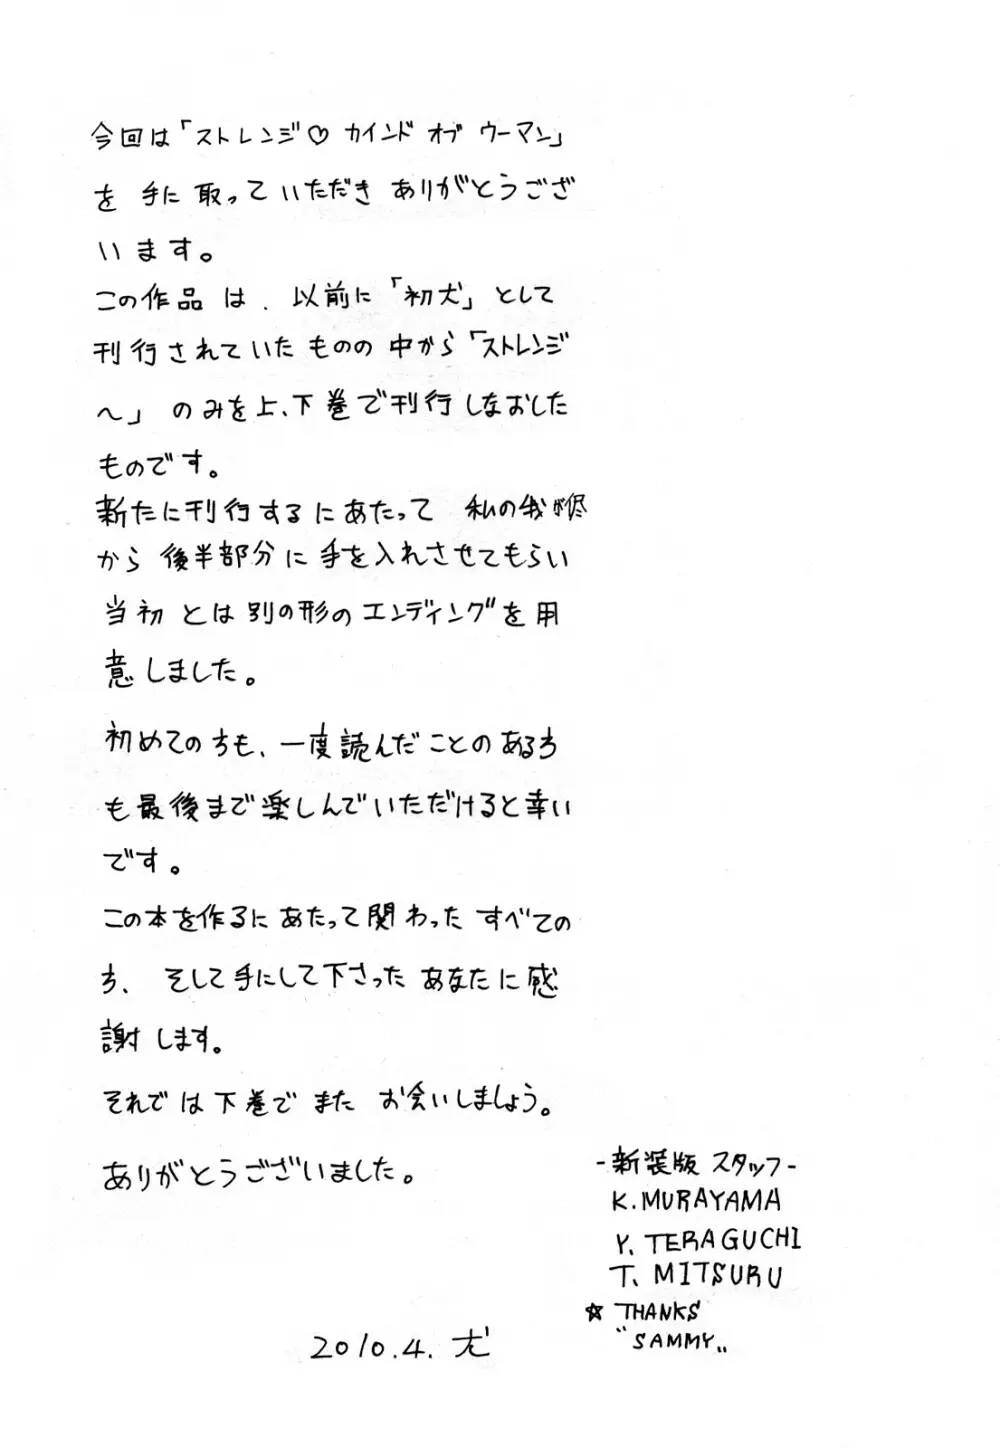 今回は「ストレンジ♡ カインド オブ ウーマン」
を 手に 取って いただき ありがとうござ
います。
この作品 は、以前に「初犬」として
刊行されていた ものの 中から「ストレンジ
～」のみを上、下巻で刊行しなおした
ものです。
新たに刊行するにあたって 私の我が侭
から 後半部分に 手を入れさせてもらい
当初 とは 別の形の エンディングを用
意しました。
初めての方も、一度読んだことのある方
も最後まで楽しんでいただけると幸い
です。
この本を作るに あたって関わった すべての
方、そして手にして下さった あなたに感
謝します。
それでは下巻で また お会いしましょう。
ありがとうございました。
-新装版 スタッフ-
K.MURAYAMA
Y.TERAGUCHI
T.MITSURU
☆ THANKS
"SAMMY"
2010.4.